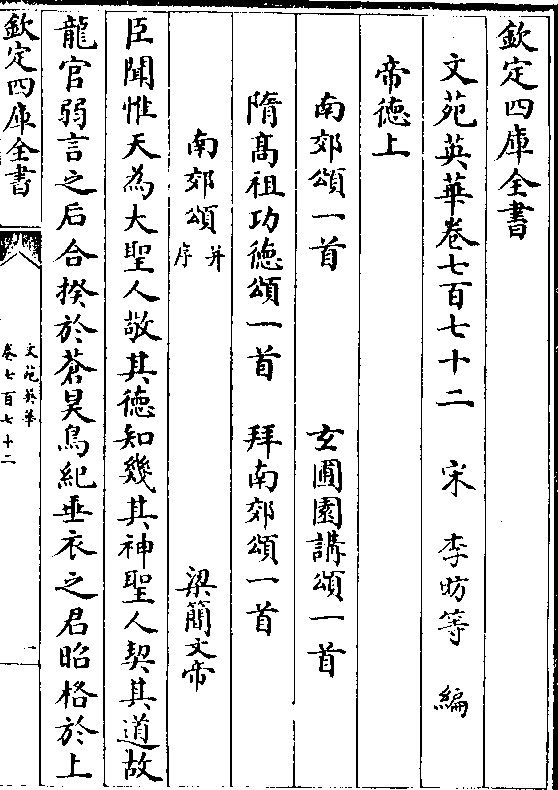 欽定四庫全書
文苑英華卷七百七十二 宋 李昉等 編
帝德上
南郊頌一首 玄圃園講頌一首
隋髙祖功徳頌一首 拜南郊頌一首
南郊頌并序 梁簡文帝
臣聞惟天為大聖人敬其徳知幾其神聖人契其道故
龍官弱言之后合揆於蒼昊鳥紀垂衣之君昭格於上
欽定四庫全書
文苑英華
卷七百七十二
一